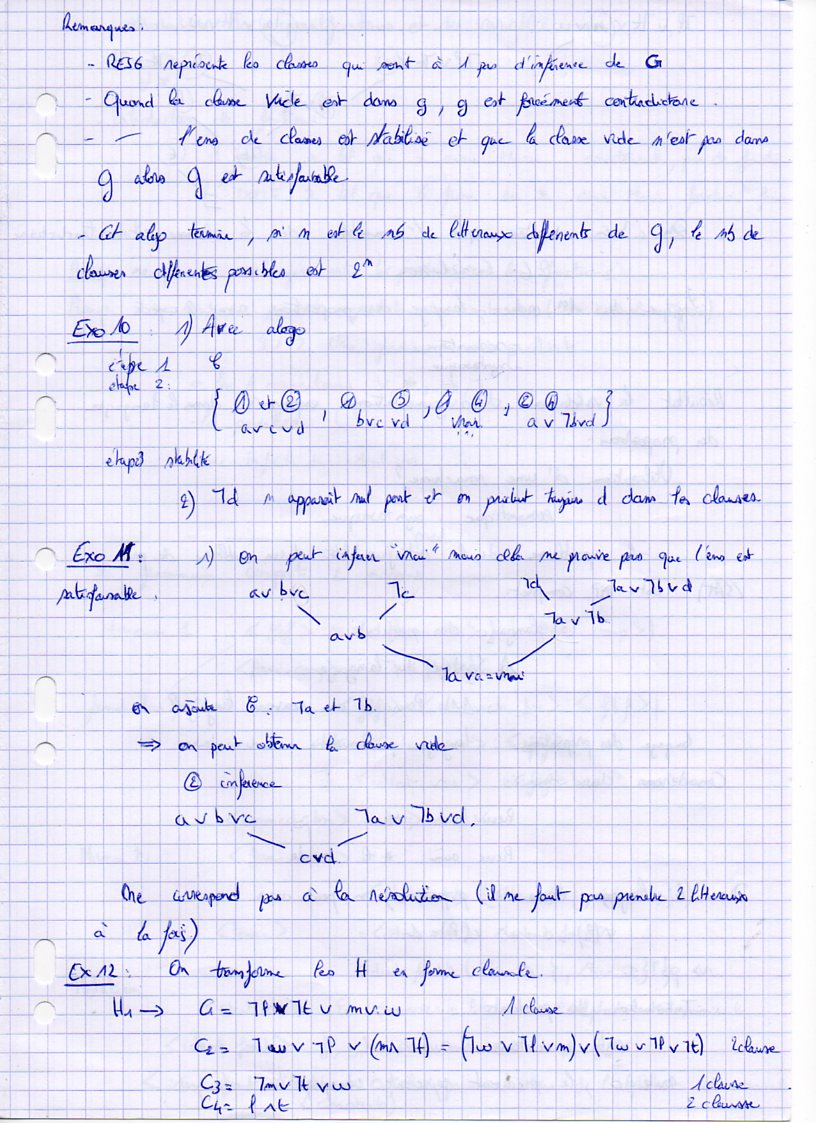 Remarques :
- RESG représente les clauses qui sont à 1 pas d'inférence de G
- Quand la clause vide est dans g, g est forcément contradictoire.
- — l'ens de clauses est stabilisé et que la clause vide n'est pas dans
g alors g est satisfaisable.
- Cet algo termine, si n est le nb de litteraux différents de g, le nb de
clauses différentes possibles est 2^n
Exo 10 : 1) Avec algo
étape 1 C
étape 2 :
{ ① et ② , ① ③ , ① ④ , ② ④ }
avcvd bvcvd vrai av⌉bvd
étape 3 stabilité
2) ⌉d n apparait nul part et on produit toujours d dans les clauses.
Exo 11 : 1) on peut inférer "vrai" mais cela ne prouve pas que l'ens est
satisfaisable.
avbvc ⌉c ⌉d ⌉av⌉bvd
avb ⌉av⌉b
⌉ava=vrai
on ajoute C : ⌉a et ⌉b
⇒ on peut obtenir la clause vide
② inference
avbvc ⌉av⌉bvd.
cvd
ne correspond pas à la résolution (il ne faut pas prendre 2 litteraux
à la fois)
Ex 12 : On transforme les H en forme clausale.
H1 → C1 = ⌉P v ⌉t v m v w 1 clause
C2 = ⌉w v ⌉P v (m∧⌉t) = (⌉w v ⌉P v m) v (⌉w v ⌉P v ⌉t) 2clause
C3 = ⌉m v ⌉t v w 1 clause
C4 = P ∧ t 2 clausse